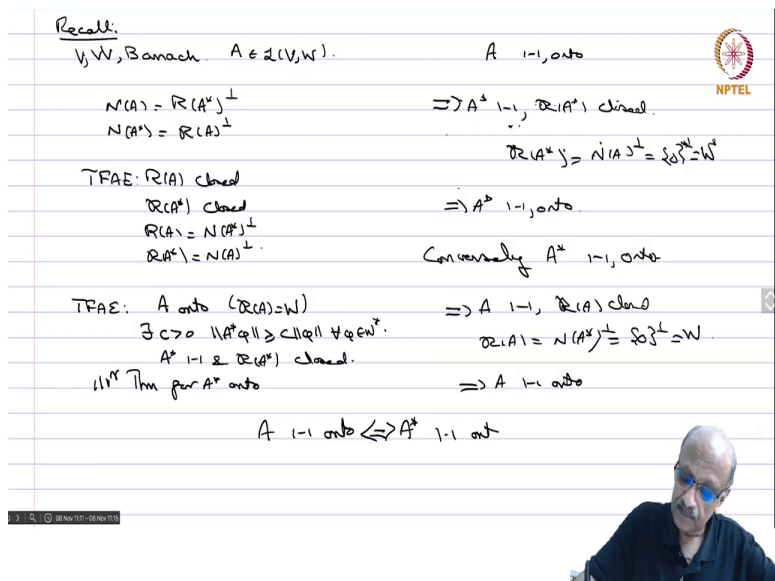 Recall:
V, W, Banach. A ∈ L(V,W).
N(A) = R(A*)^⊥
N(A*) = R(A)^⊥
TFAE: R(A) closed
R(A*) closed
R(A) = N(A*)^⊥
R(A*) = N(A)^⊥.
TFAE: A onto (R(A)=W)
∃ c>0 ||A*φ|| ≥ c||φ|| ∀φ∈W*.
A* 1-1 & R(A*) closed.
|||ʳ Thm for A* onto
A 1-1, onto
=> A* 1-1, R(A*) closed.
R(A*) = N(A)^⊥ = {0}^⊥ = W*
=> A* 1-1, onto.
Conversely A* 1-1, onto
=> A 1-1, R(A) closed
R(A) = N(A*)^⊥ = {0}^⊥ = W.
=> A 1-1 onto
A 1-1 onto <=> A* 1-1 ont
NPTEL
08 Nov 11:11 - 08 Nov 11:15